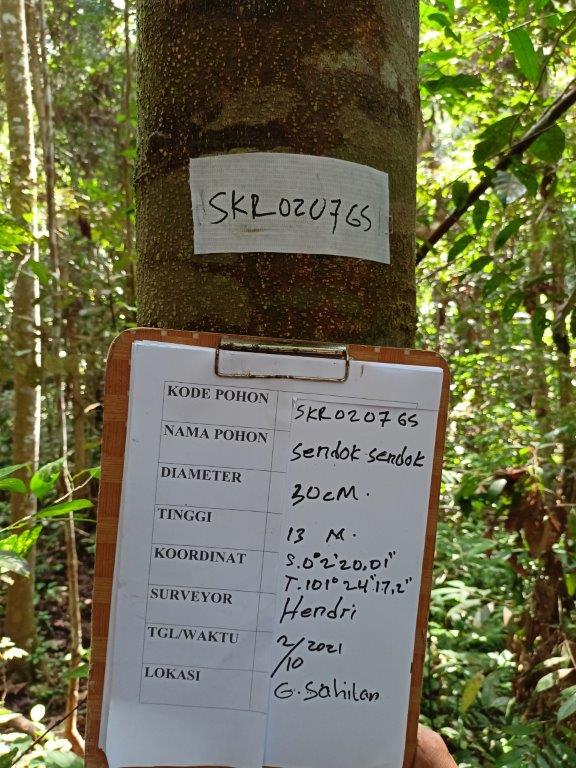 SKR0207GS
KODE POHON SKR0207GS
NAMA POHON Sendok sendok
DIAMETER 30 cM.
TINGGI 13 M.
KOORDINAT S.0°2'20,01"
T.101°24'17,2"
SURVEYOR Hendri
TGL/WAKTU 2/10 2021
LOKASI G. Sahilan